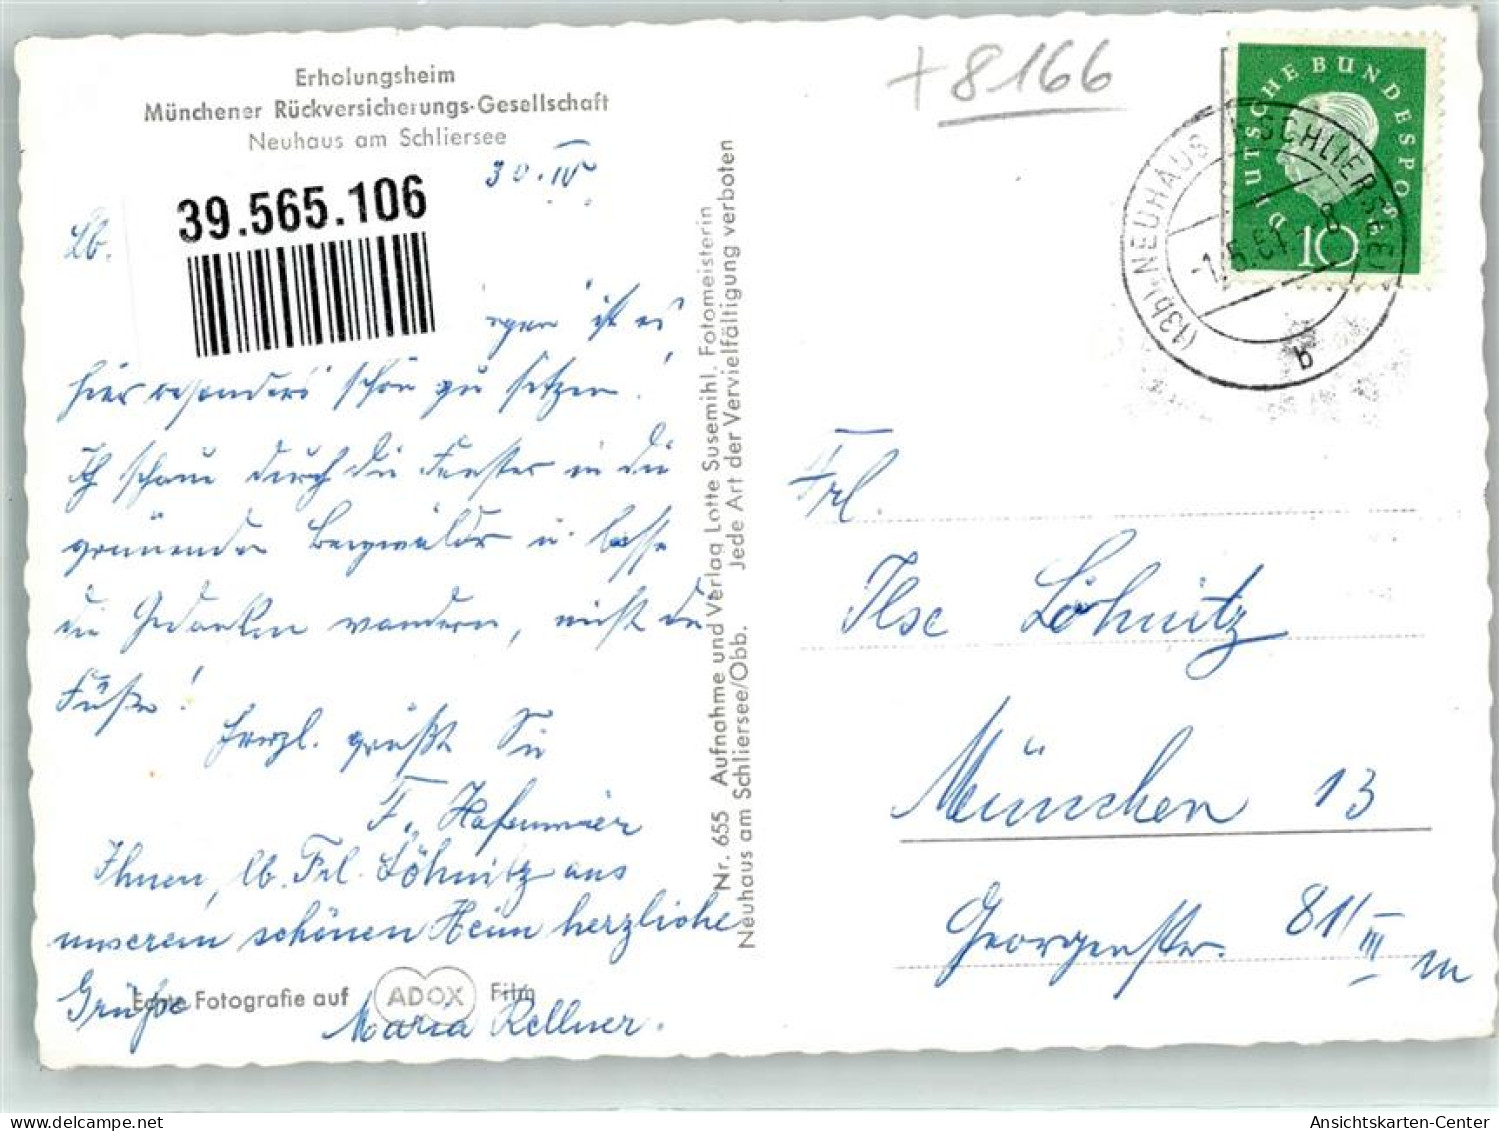 Erholungsheim
Münchener Rückversicherungs-Gesellschaft
Neuhaus am Schliersee
30.IV
39.565.106
Lb.
ist es
hier besonders schön zu sitzen!
Ich schaue durch die Fenster in die
grünenden Bergwälder u. lasse
die Gedanken wandern, nicht die
Füße!
Herzl. grüßt Sie
F. Hafenmaier
Ihnen, lb. Frl. Löhnitz aus
unserem schönen Heim herzliche
Grüße
Maria Kellner.
Echte Fotografie auf ADOX Film
Nr. 655 Aufnahme und Verlag Lotte Susemihl, Fotomeisterin
Neuhaus am Schliersee/Obb. Jede Art der Vervielfältigung verboten
+8166
DEUTSCHE BUNDESPOST
10
(13b) NEUHAUS SCHLIERSEE
b
Frl.
Ilse Löhnitz
München 13
Georgenstr. 81/III
Ansichtskarten-Center